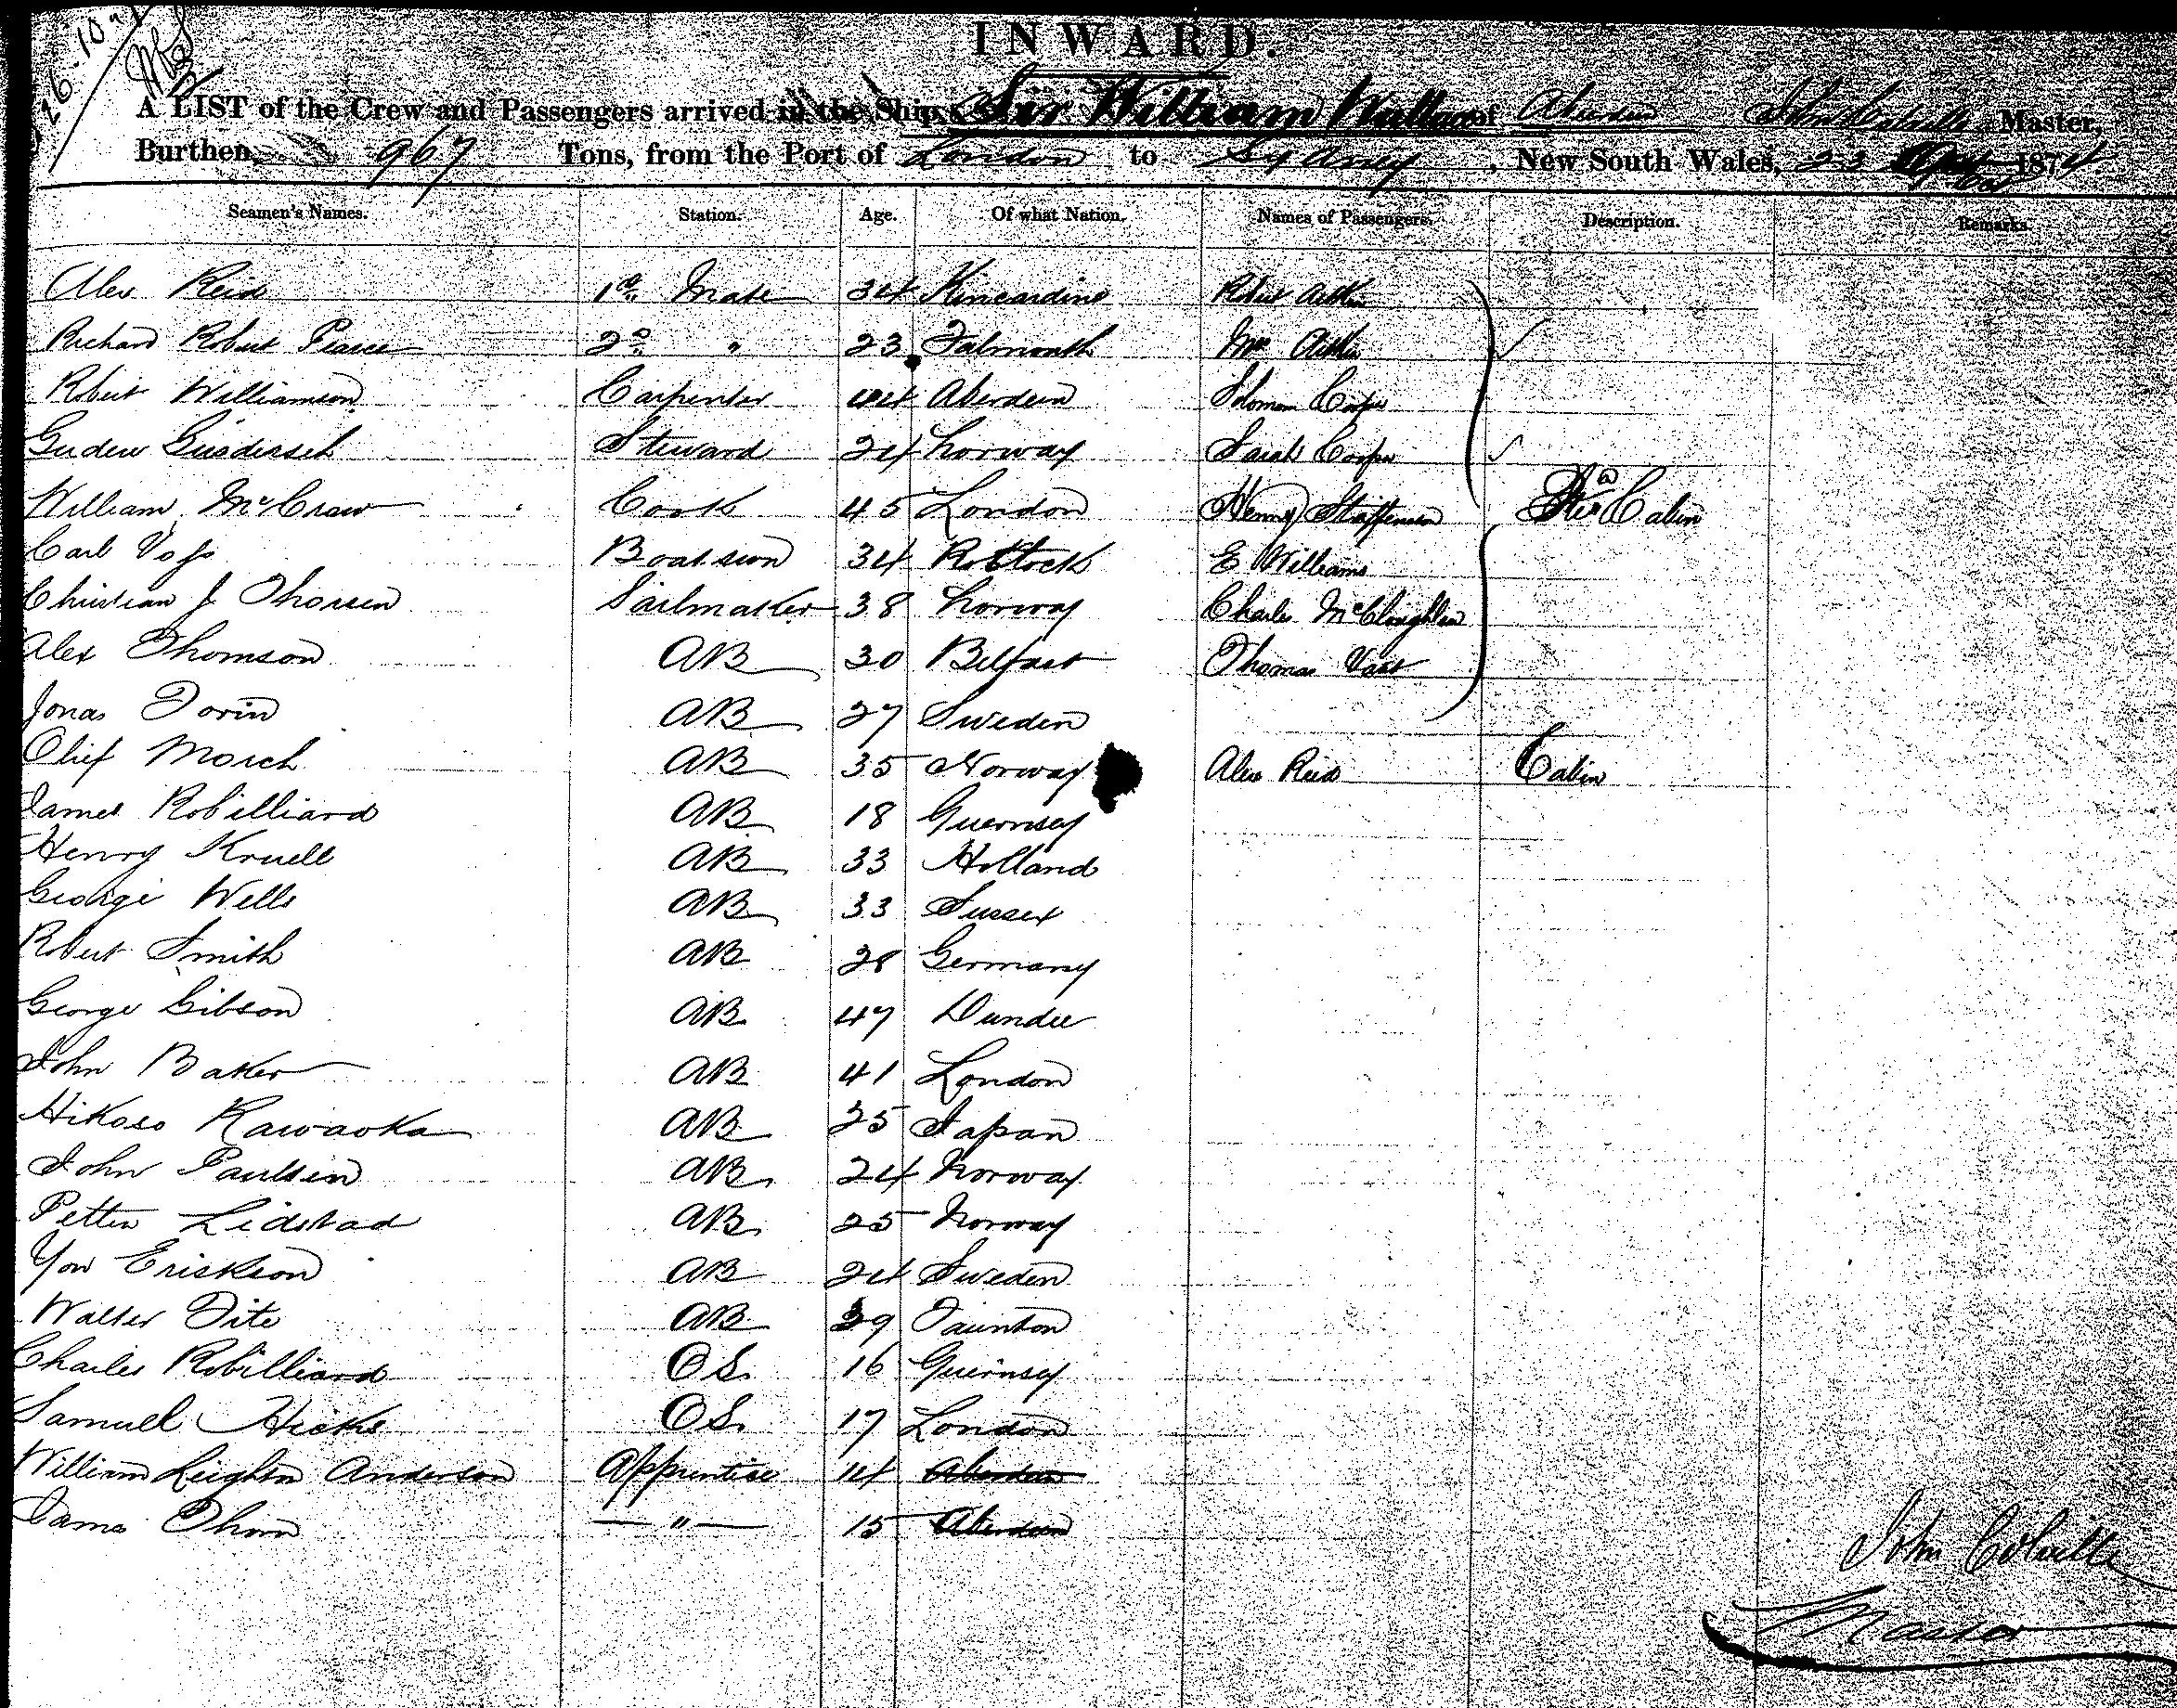 INWARD.
A LIST of the Crew and Passengers arrived in the Ship Sir William Wallace of Aberdeen John Colville Master,
Burthen, 967 Tons, from the Port of London to Sydney, New South Wales, 23 1874
Seamen's Names. Station. Age. Of what Nation. Names of Passengers. Description. Remarks.
Alex Reid 1st Mate 34 Kincardine Robert Aitken
Richard Robert Pearce 2d " 23 Falmouth Mrs Aitken
Robert Williamson Carpenter 44 Aberdeen Solomon Cooper
Steward 24 Norway Sarah Cooper
William McCraw Cook 45 London Henry Cabin
Carl Vofs Boatswn 34 Rostock E Williams
Christian J Thorsen Sailmaker 38 Norway Charles McCloughlin
Alex Thomson AB 30 Belfast Thomas Vast
Jonas Torin AB 27 Sweden
Olief Morch AB 35 Norway Alex Reid Cabin
James Robilliard AB 18 Guernsey
Henry Kruell AB 33 Holland
George Wells AB 33 Sussex
Robert Smith AB 28 Germany
George Gibson AB 47 Dundee
John Baker AB 41 London
Hikoso Kawaoka AB 25 Japan
John Paulsen AB 24 Norway
Petter Lidstad AB 25 Norway
Yon Erickson AB 24 Sweden
Walter Tite AB 39 Taunton
Charles Robilliard OS. 16 Guernsey
Samuel Hicks OS. 17 London
William Leighton Anderson Apprentice 14 Aberdeen
James Thom — " — 15 Aberdeen
John Colville
Master